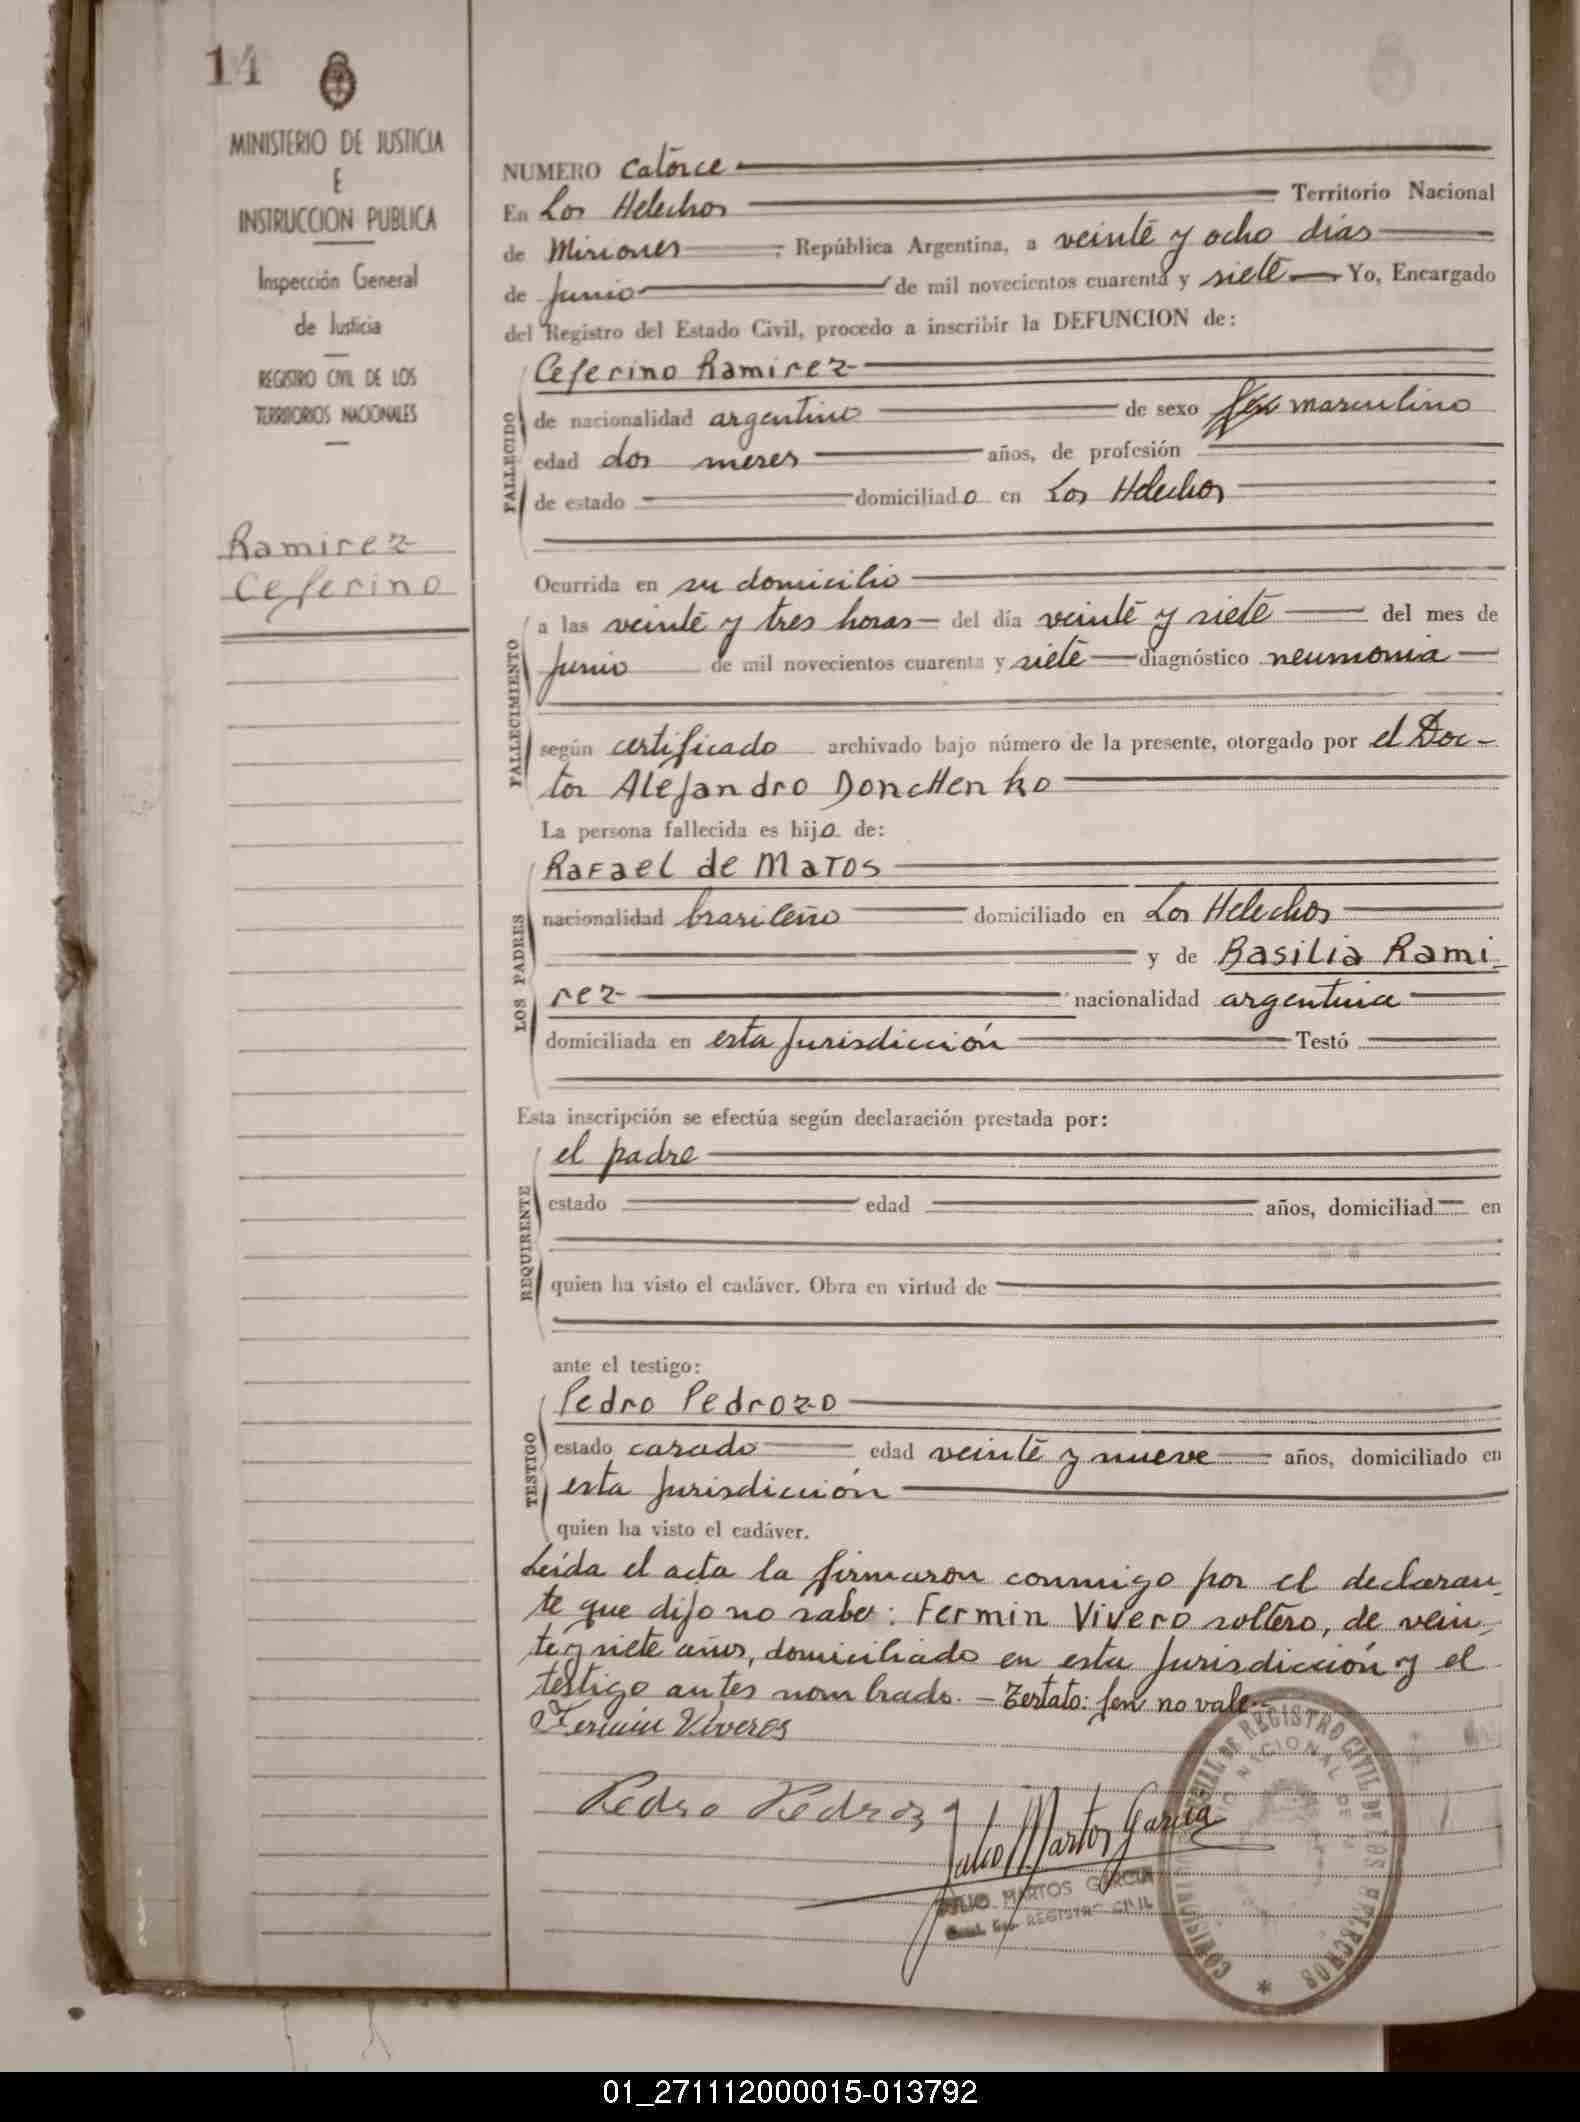 14
MINISTERIO DE JUSTICIA
E
INSTRUCCION PUBLICA
Inspección General
de Justicia
REGISTRO CIVIL DE LOS
TERRITORIOS NACIONALES
Ramirez
Ceferino
NUMERO Catorce
En Los Helechos Territorio Nacional
de Misiones ; República Argentina, a veinte y ocho dias
de Junio de mil novecientos cuarenta y siete Yo, Encargado
del Registro del Estado Civil, procedo a inscribir la DEFUNCION de:
FALLECIDO
Ceferino Ramirez
de nacionalidad argentino de sexo fen masculino
edad dos meses años, de profesión
de estado domiciliado en Los Helechos
FALLECIMIENTO
Ocurrida en su domicilio
a las veinte y tres horas del día veinte y siete del mes de
Junio de mil novecientos cuarenta y siete diagnóstico neumonia
según certificado archivado bajo número de la presente, otorgado por el Doc-
tor Alejandro Donchenko
La persona fallecida es hijo de:
LOS PADRES
Rafael de Matos
nacionalidad brasileño domiciliado en Los Helechos
y de Basilia Rami-
rez nacionalidad argentina
domiciliada en esta Jurisdicción Testó
Esta inscripción se efectúa según declaración prestada por:
REQUIRENTE
el padre
estado edad años, domiciliad en
quien ha visto el cadáver. Obra en virtud de
ante el testigo:
TESTIGO
Pedro Pedrozo
estado casado edad veinte y nueve años, domiciliado en
esta Jurisdicción
quien ha visto el cadáver.
Leída el acta la firmaron conmigo por el declaran-
te que dijo no saber: Fermin Vivero soltero, de vein-
te y siete años, domiciliado en esta Jurisdicción y el
testigo antes nombrado. - Testato: fen no vale-
Fermin Viveros
Pedro Pedrozo
Julio Martos Garcia
JULIO MARTOS GARCIA
REGISTRO CIVIL
DE REGISTRO CIVIL DE LOS HELECHOS
NACIONAL DE
01_271112000015-013792